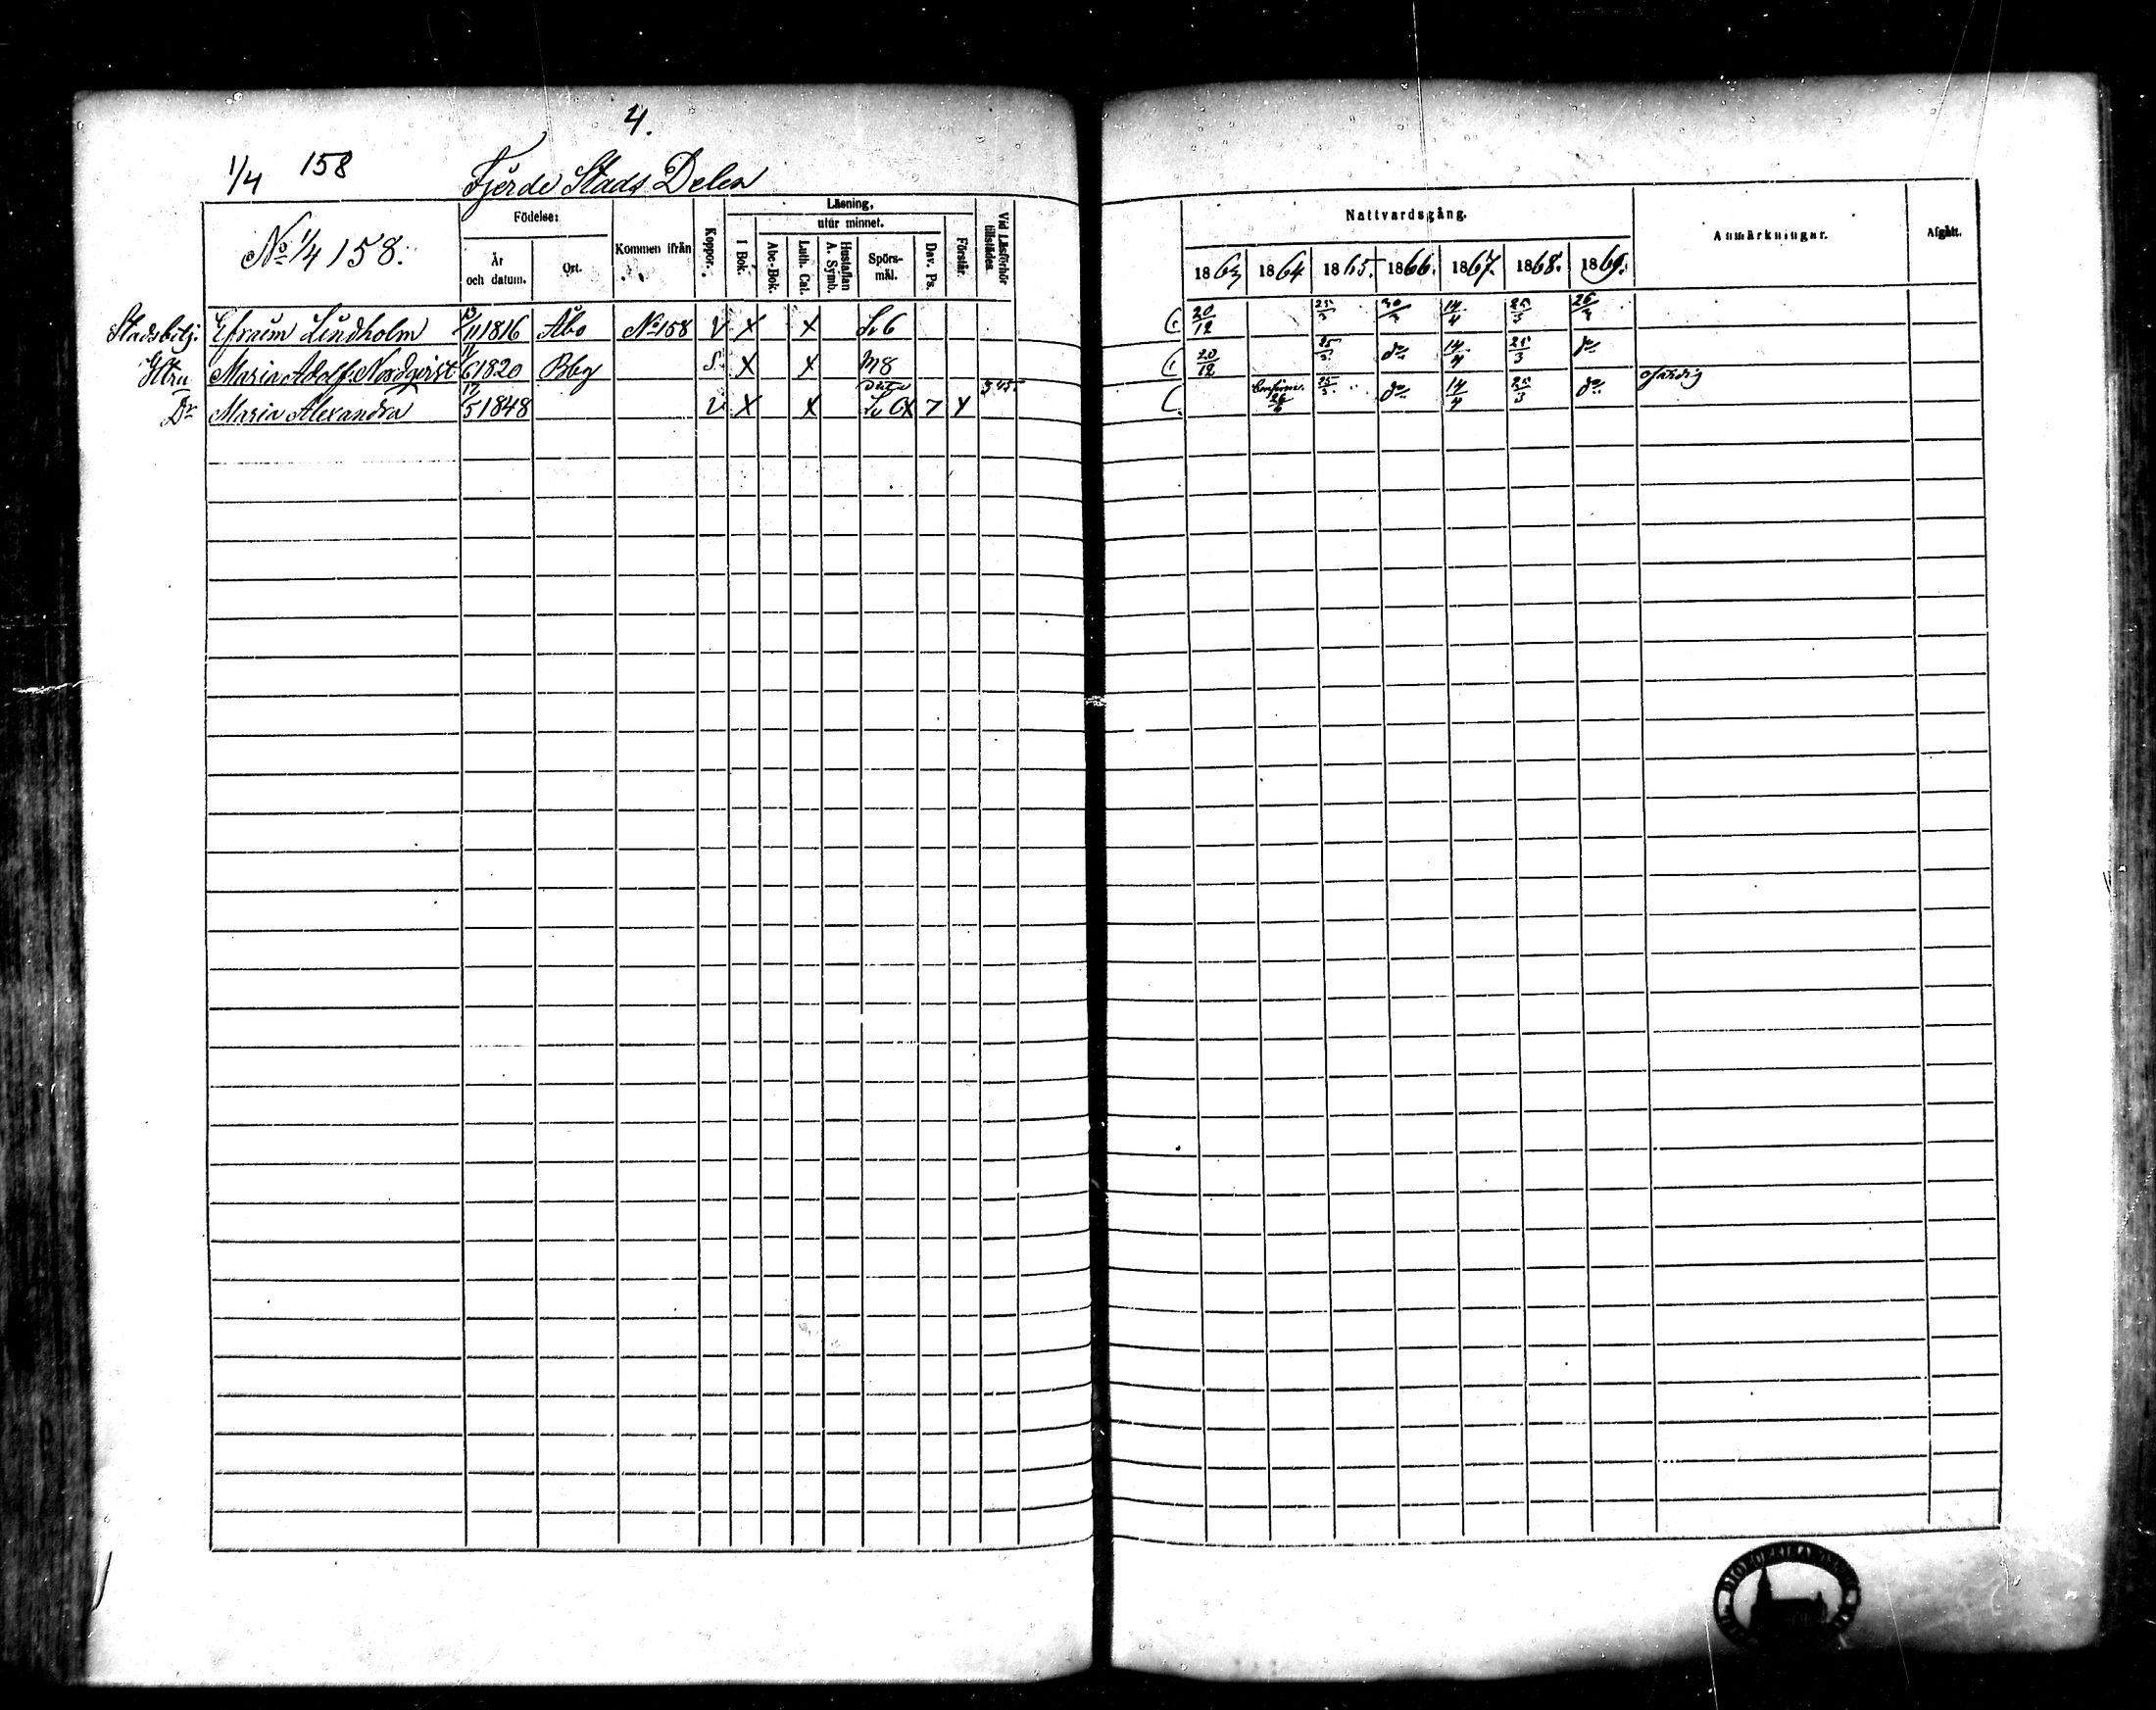 4.
1/4 158 Fjerde Stads Delen
No 1/4 158.
Födelse:
År och datum.
Ort.
Kommen ifrån
Koppor.
Läsning,
I Bok.
utur minnet.
Abc-Bok.
Luth. Cat.
Hustaflan A. Symb.
Spörsmål.
Dav. Ps.
Förstår.
Vid Läsförhör tillstädes
Nattvardsgång.
1863 1864 1865. 1866. 1867. 1868. 1869.
Anmärkningar.
Afgått.
Stadsbetj. Efraim Lindholm 11 1816 Åbo No 158 V X X Sv 6 C 20/12 25/3 14/4 25/3
Htru Maria Adolf. Nordqvist 6 1820 Bbg S. X X M 8 C 20/12 25/3 do 14/4 25/3 do
Dr Maria Alexandra 17/5 1848 V X X 7 C 25/3 do 14/4 25/3 do ofärdig